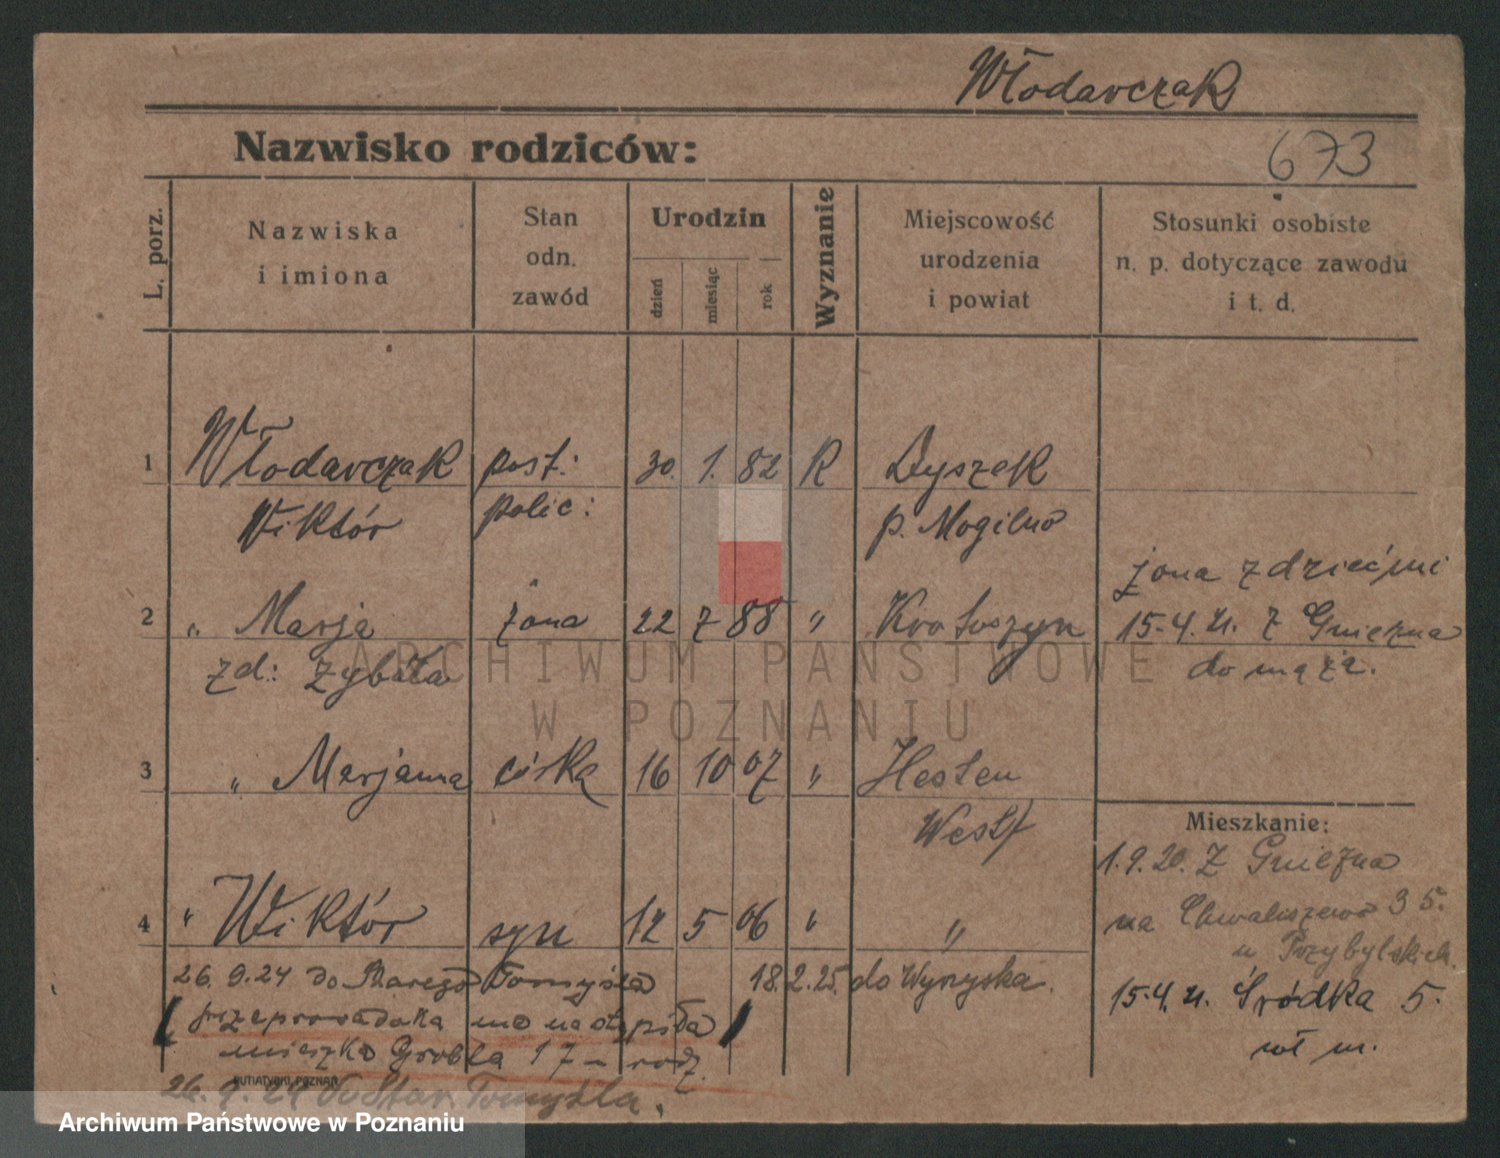 Włodarczak
Nazwisko rodziców:
673
L. porz.
Nazwiska
i imiona
Stan
odn.
zawód
Urodzin
dzień
miesiąc
rok
Wyznanie
Miejscowość
urodzenia
i powiat
Stosunki osobiste
n. p. dotyczące zawodu
i t. d.
1 Włodarczak post.: 30. 1. 82 R Dyszek
Wiktór polic: p. Mogilno
żona z dziećmi
2 „ Marja żona 22 7 88 „ Krotoszyn 15.4.21. z Gniezna
zd.: Zybała do męża.
ARCHIWUM PAŃSTWOWE
W POZNANIU
3 „ Marjanna córka 16 10 07 „ Hesten
West/
Mieszkanie:
1.9.20. z Gniezna
4 „ Wiktór syn 12 5 06 „ „ na Chwaliszewo 35.
u Przybylskich.
26.9.24 do Starego Tomyśla 18.2.25. do Wyrzyska.
15.4.21. Śródka 5.
przeprowadzka nie nastąpiła
wł m.
mieszka Grobla 17 – rodz.
PUTIATYCKI, POZNAŃ
26.9.24 do Star. Tomyśla.
Archiwum Państwowe w Poznaniu